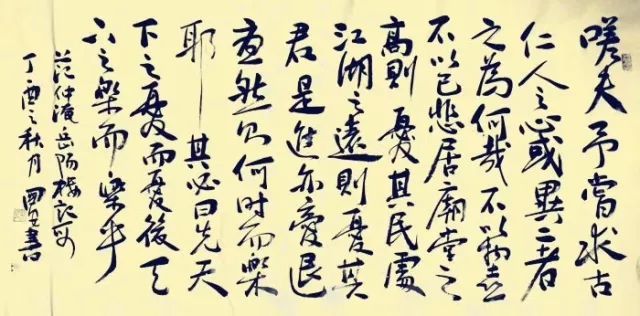 嗟夫予嘗求古
仁人之心或異二者
之為何哉不以物喜
不以己悲居廟堂之
高則憂其民處
江湖之遠則憂其
君是進亦憂退
亦憂然則何時而樂
耶其必曰先天
下之憂而憂後天
下之樂而樂乎
范仲淹岳陽樓記句
丁酉之秋月書